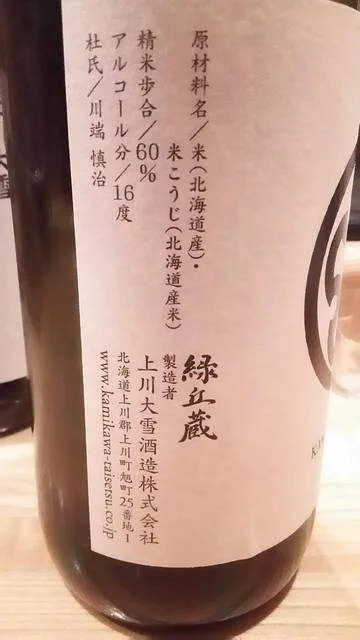 原材料名／米(北海道産)・
米こうじ(北海道産米)
精米歩合／60％
アルコール分／16度
杜氏／川端 慎治
緑丘蔵
製造者
上川大雪酒造株式会社
北海道上川郡上川町旭町25番地1
www.kamikawa-taisetsu.co.jp